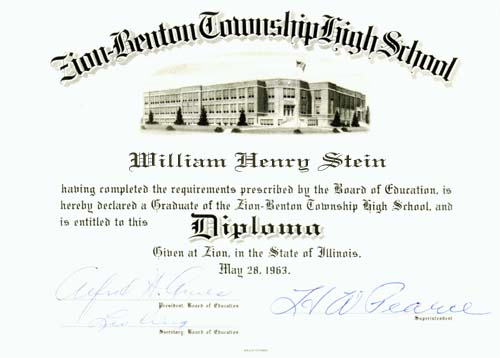 Zion-Benton Township High School
William Henry Stein
having completed the requirements prescribed by the Board of Education, is
hereby declared a Graduate of the Zion-Benton Township High School, and
is entitled to this Diploma
Given at Zion, in the State of Illinois,
May 28, 1963.
Alfred H.
President, Board of Education
H W Pearce
Superintendent
Secretary, Board of Education